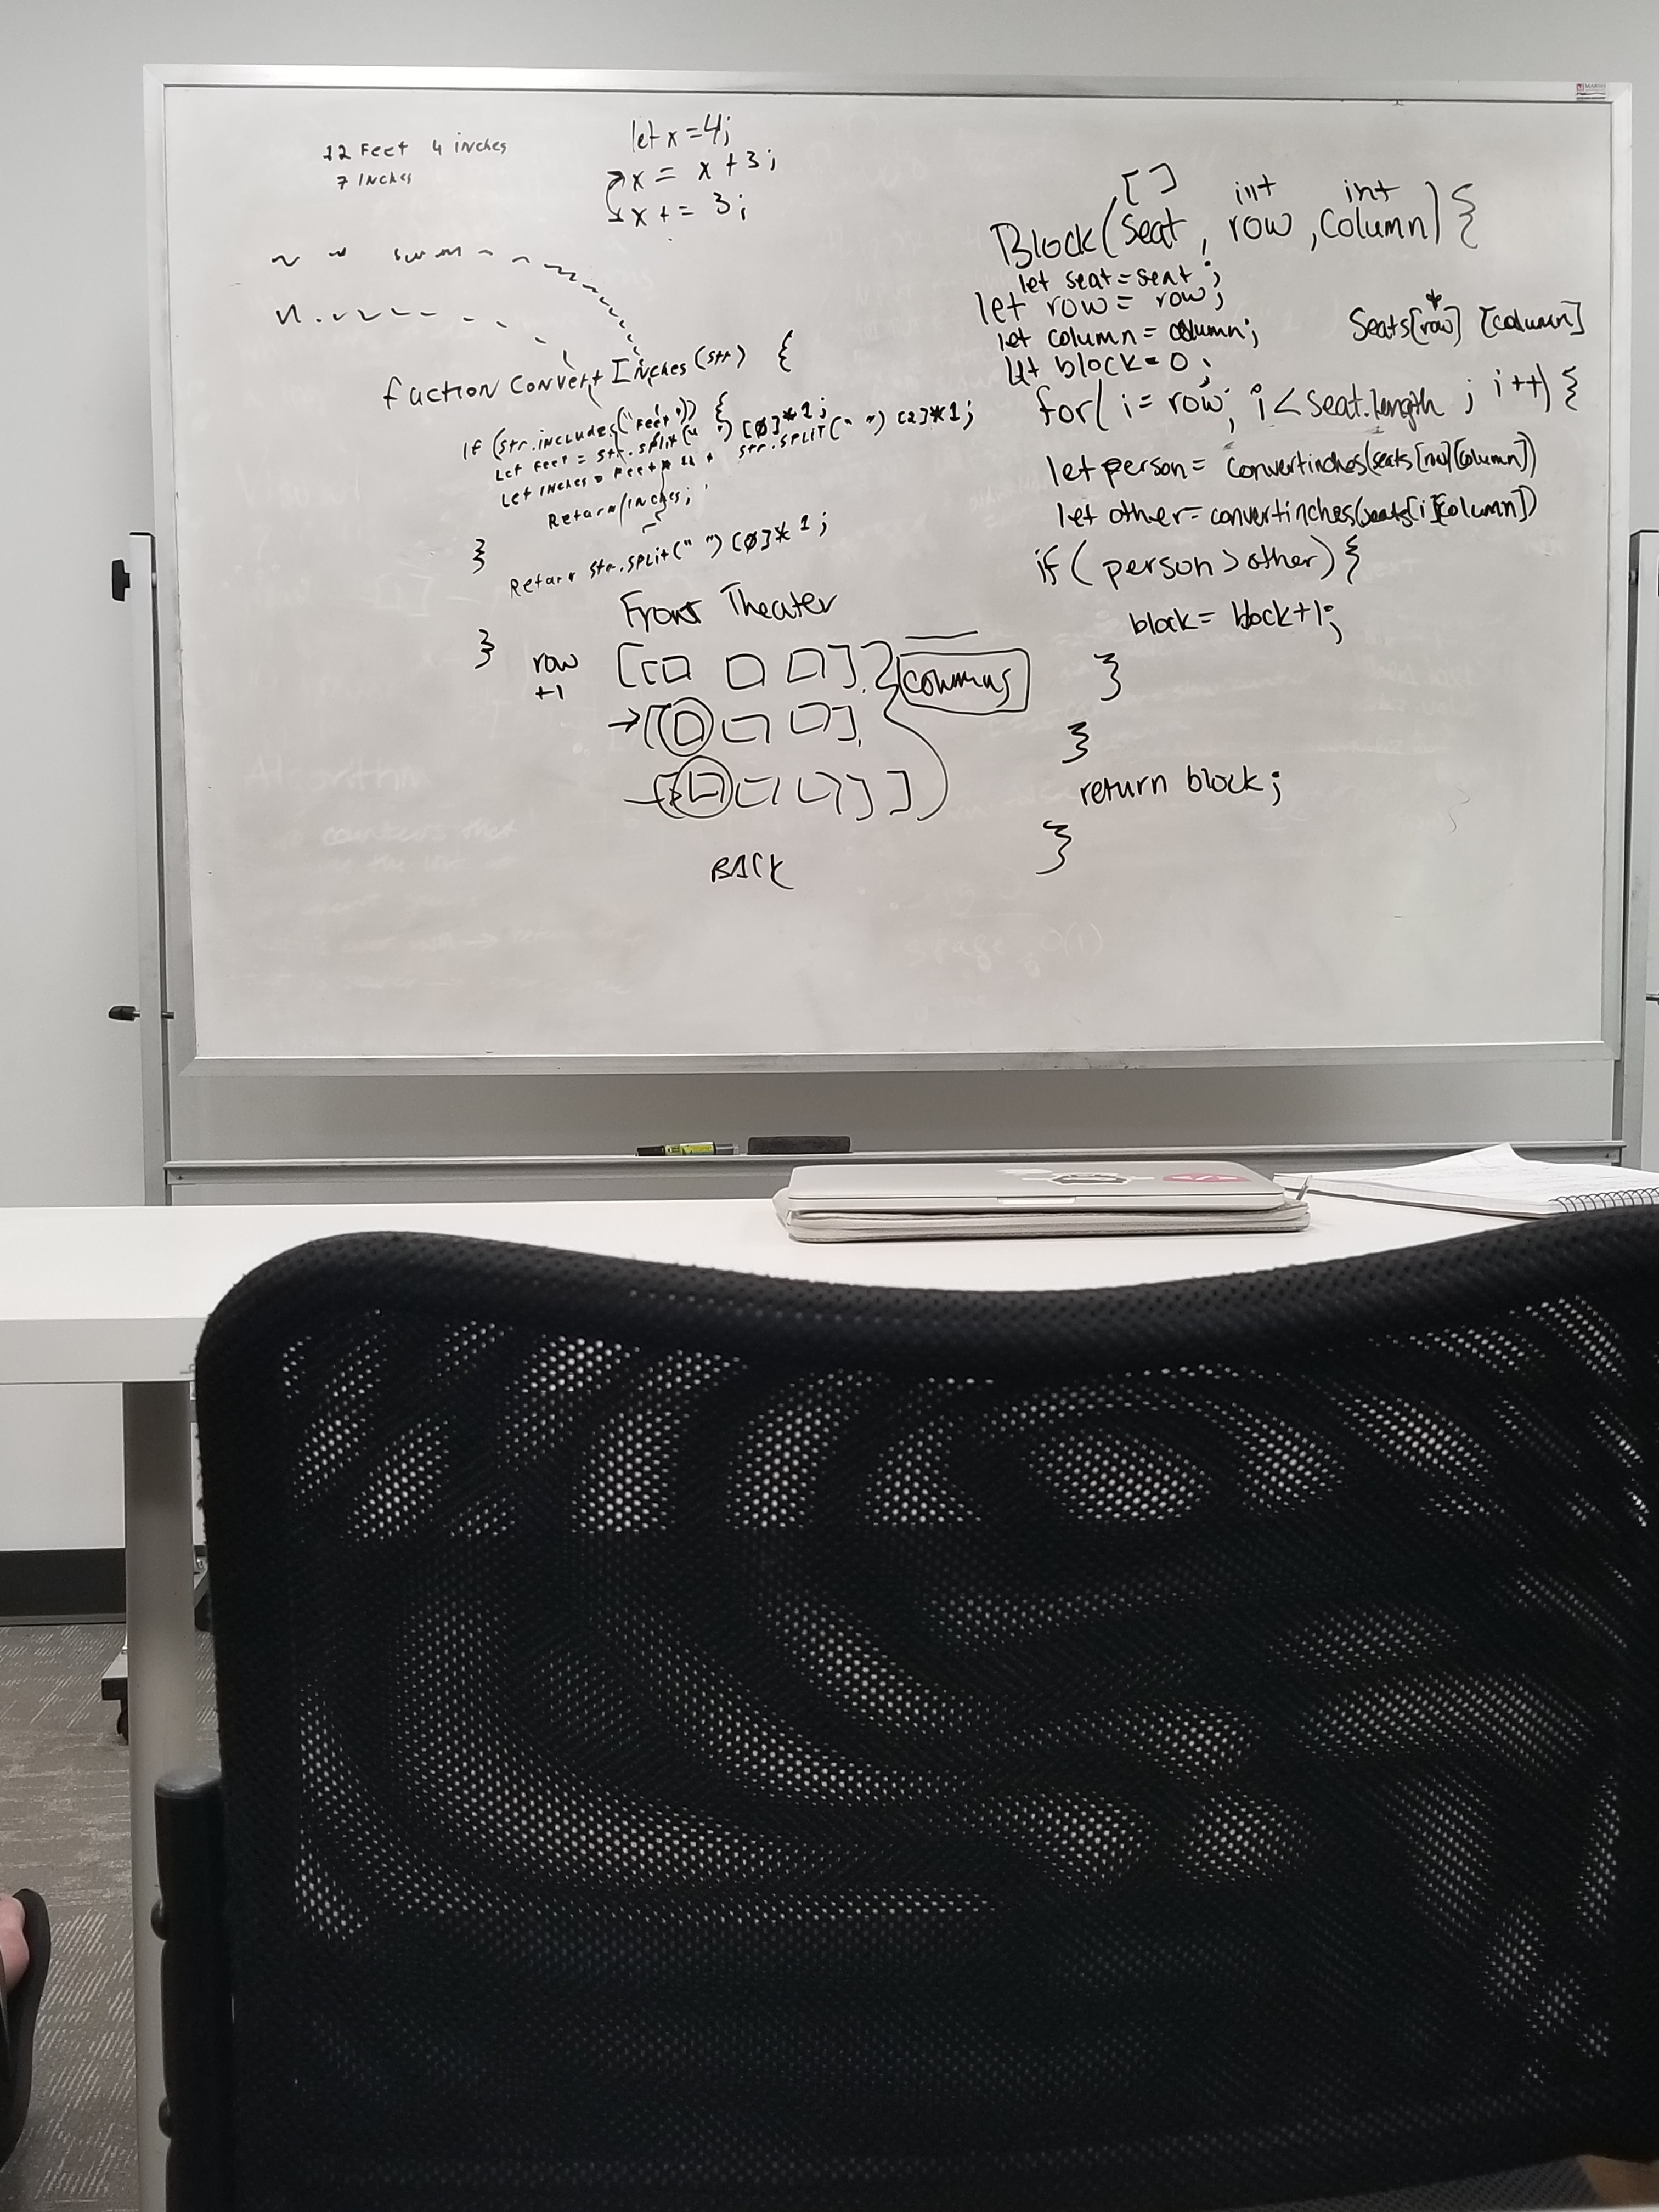 12 Feet 4 inches
7 Inches
let x = 4;
x = x + 3;
x += 3;
fuction Convert Inches (str) {
If (str.includes("Feet")) {
Let Feet = str.split(" ") [0]*1;
Let inches = Feet * 12 + str.split(" ") [2]*1;
Return inches;
}
Return str.split(" ") [0]* 1;
}
Front Theater
row
+1
[[□ □ □],
→[□ □ □],
→[□ □ □] ]
BACK
[ ] int int
Block(seat, row, column) {
let seat = seat;
let row = row;
let column = column;
let block = 0;
Seats[row] [column]
for( i = row; i < seat.length; i++) {
let person = convertinches(seats[row][column])
let other = convertinches(seats[i][column])
if ( person > other) {
block = block+1;
}
}
return block;
}